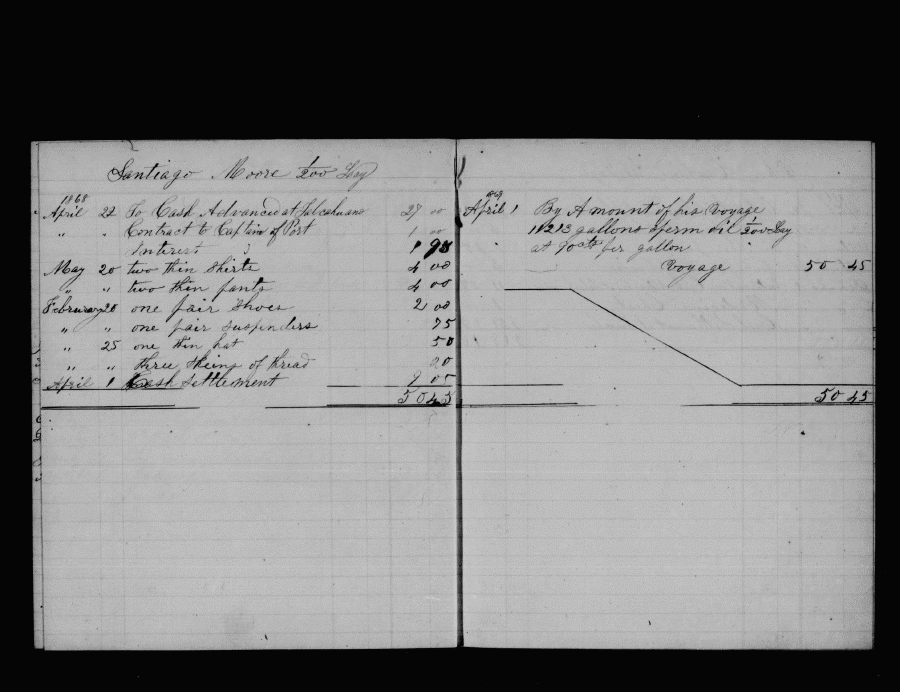 Santiago Moore 1/200 Lay
1868
April 22 To Cash Advanced at Talcahuano 27 00
" " Contract to Captain of Port 1 00
Interest " 1 95
May 20 two thin shirts 4 00
" " two thin pants 4 00
February 20 one pair shoes 2 00
" " one pair suspenders 75
" 25 one thin hat 50
" " three skeins of thread 20
April 1 Cash Settlement 9 05
50 45
1869
April 1 By Amount of his Voyage
11213 gallons sperm oil 1/200 Lay
at 90 cts per gallon
Voyage 50 45
50 45